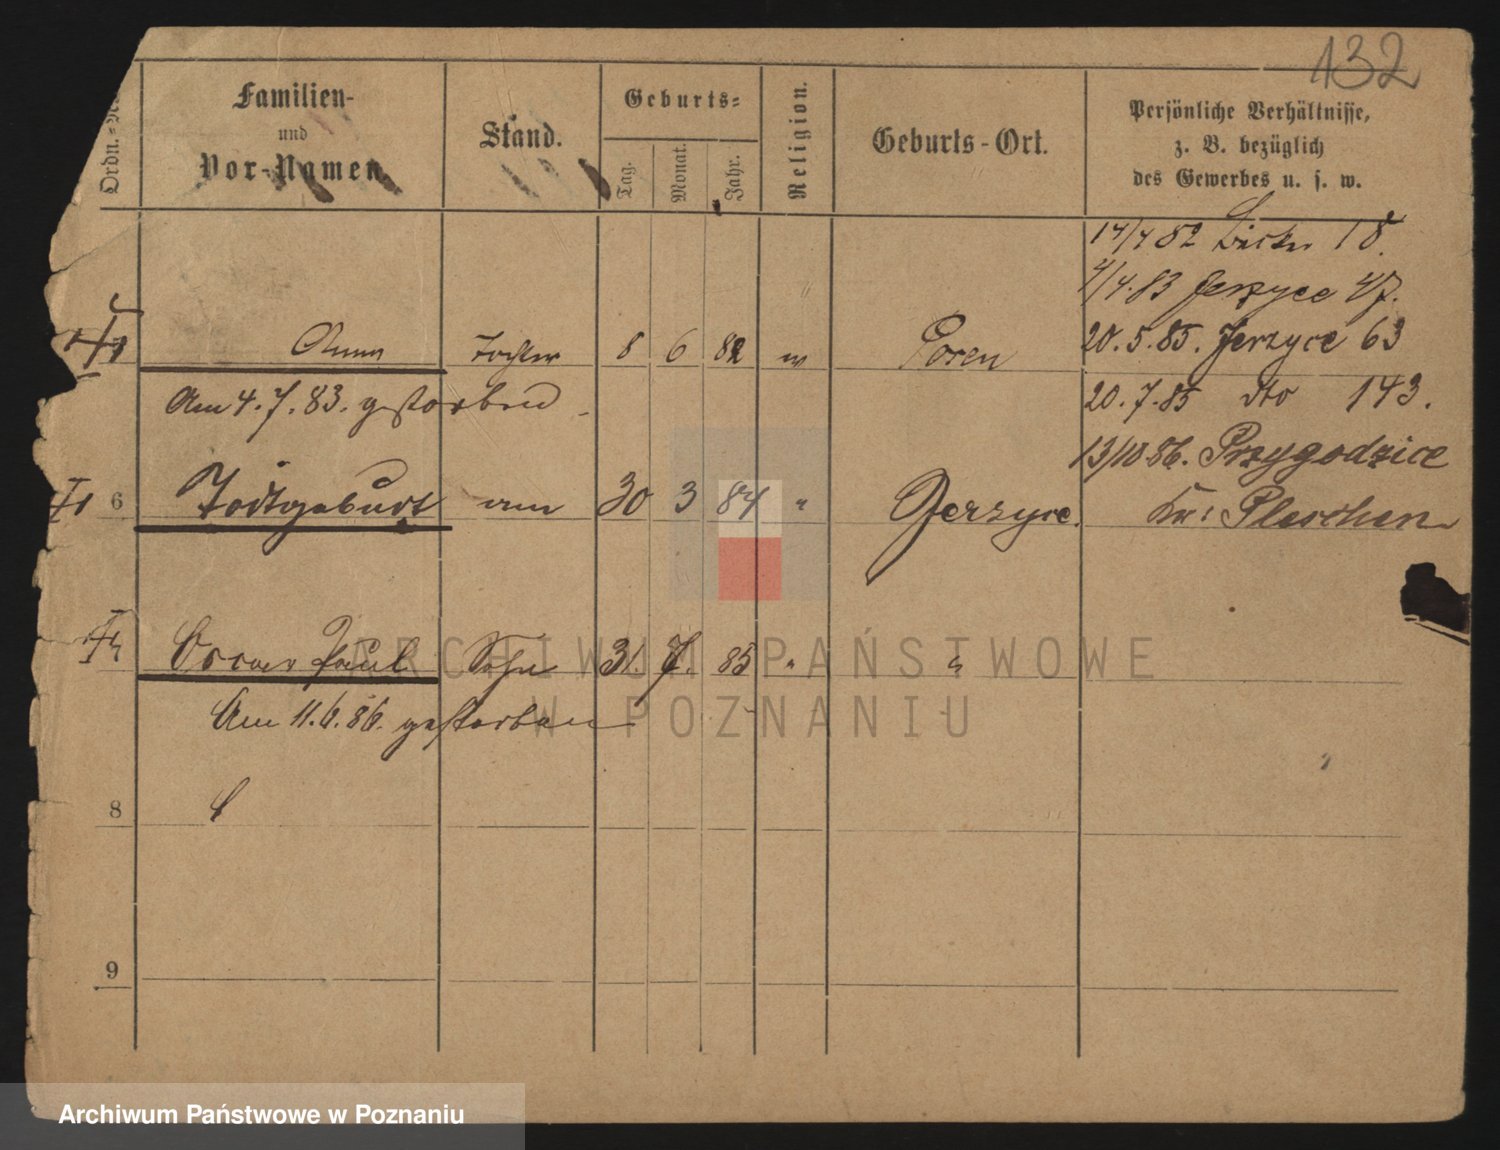 132
Ordn.=N
Familien-
und
Vor-Namen.
Stand.
Geburts=
Tag.
Monat.
Jahr.
Religion.
Geburts-Ort.
Persönliche Verhältnisse,
z. B. bezüglich
des Gewerbes u. s. w.
14/4 82 18.
4/4.83 Jerzyce 47.
Anna Tochter 8 6 82 Posen 20.5.85. Jerzyce 63
Am 4.7.83. gestorben 20.7.85 dto 143.
13/10.86. Przygodzice
6 Todtgeburt am 30 3 84 " Jerzyce. Kr: Pleschen
Oscar Paul Sohn 31. 7. 85 " "
Am 11.6.86. gestorben
8
9
ARCHIWUM PAŃSTWOWE
W POZNANIU
Archiwum Państwowe w Poznaniu